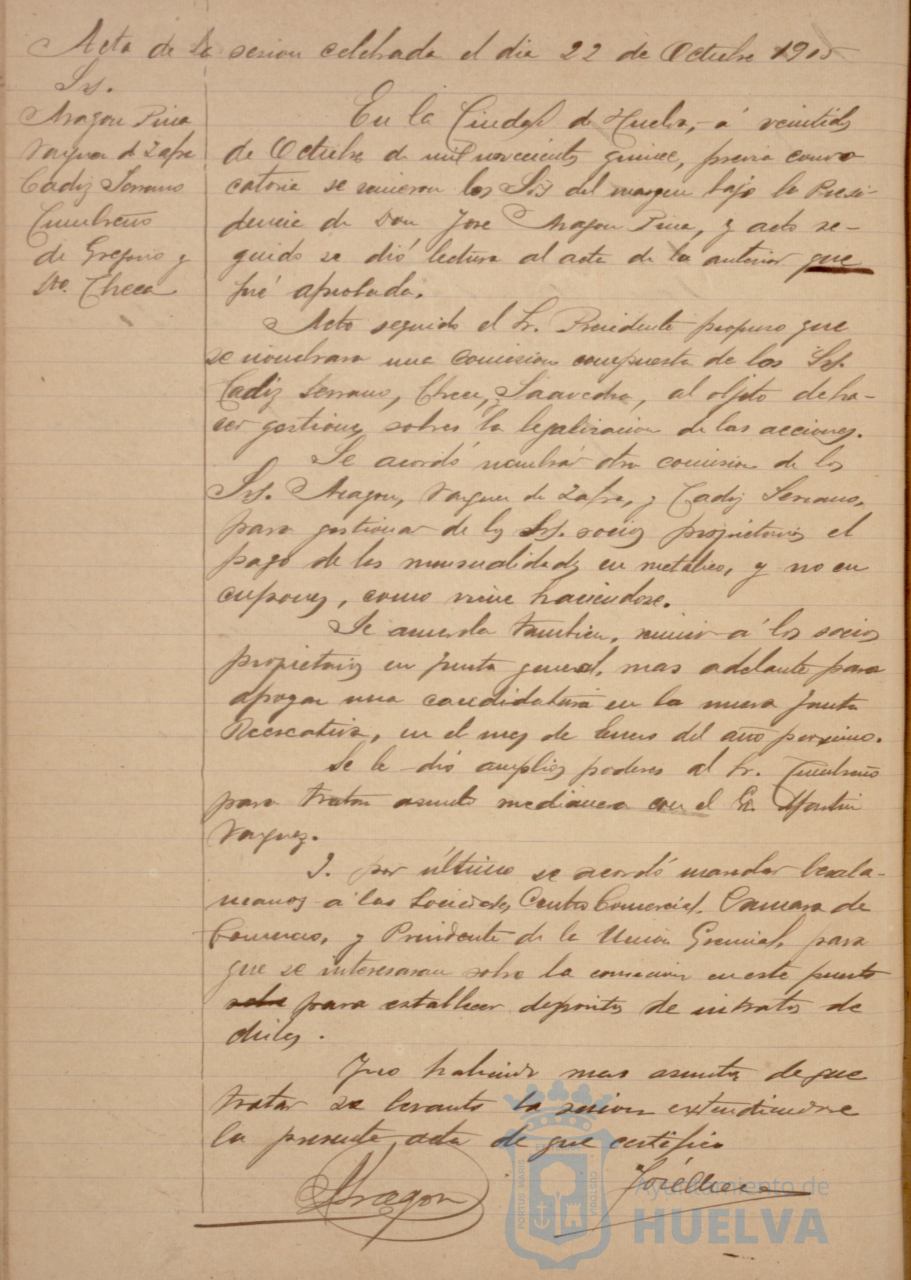 Acta de la sesion celebrada el dia 22 de Octubre 1915
Srs.
Aragon Pina
Vazquez de Zafra
Cadiz Serrano
Cumbreño
de Gregorio y
Sto. Checa
En la Ciudad de Huelva, á veintidos
de Octubre de mil novecientos quince, previa convo
catoria se reunieron los Srs del margen bajo la Presi-
dencia de Don Jose Aragon Pina, y acto se-
guido se dió lectura al acta de la anterior que
fué aprobada.
Acto seguido el Sr. Presidente propuso que
se nombrara una comision compuesta de los Srs.
Cadiz Serrano, Checa, Saavedra, al objeto de ha-
cer gestiones sobres la legalizacion de las acciones.
Se acordó nombrar otra comision de los
Srs. Aragon, Vazquez de Zafra, y Cadiz Serrano,
para gestionar de los Srs. socios propietarios el
pago de las mensualidades en metalico, y no en
cupones, como viene haciendose.
Se acuerda tambien, reunir á los socios
propietarios en junta general, mas adelante para
apoyar una candidatura en la nueva Junta
Recreativa, en el mes de Enero del año proximo.
Se le dió amplios poderes al Sr. Cumbreño
para tratar asunto medianera con el Sr. Martin
Vazquez.
I. por último se acordó mandar besala-
manos á las Sociedades Centro Comercial, Camara de
Comercio, y Presidente de la Union Gremial, para
que se interesaran sobre la concesion en este puerto
para establecer depositos de nitratos de
chiles.
Y no habiendo mas asuntos de que
tratar se levanto la sesion extendiendose
la presente acta de que certifico
Aragon
José Checa
PORTUS MARIS
ET TERRAE CUSTODIA
Ayuntamiento de
HUELVA